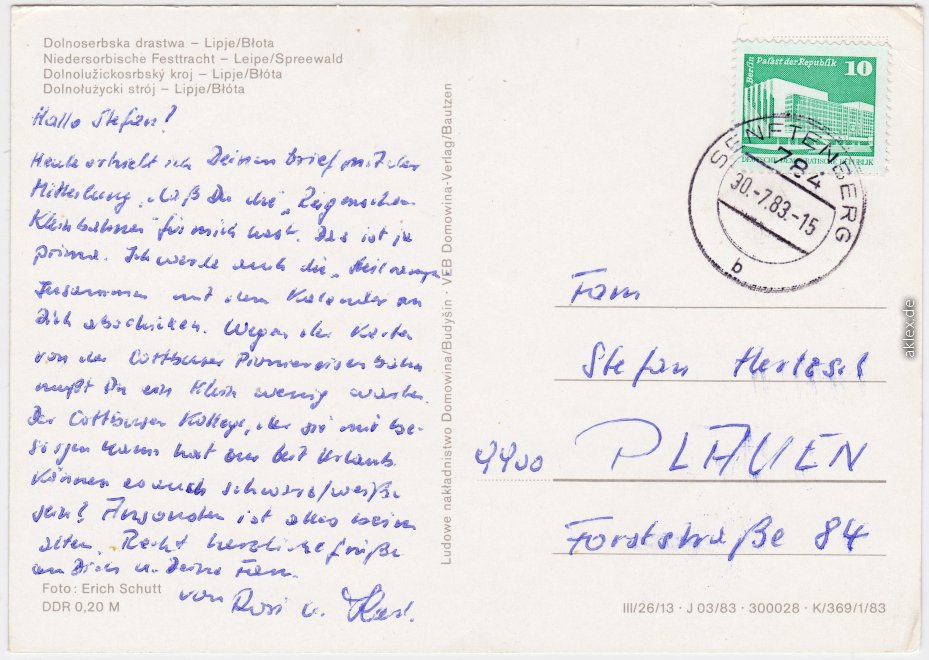 Dolnoserbska drastwa – Lipje/Błota
Niedersorbische Festtracht – Leipe/Spreewald
Dolnolužickosrbský kroj – Lipje/Blóta
Dolnołużycki strój – Lipje/Błóta
Hallo Stefan!
Heute erhielt ich Deinen Brief mit der
Mitteilung, daß Du die
Kleinbahnen für mich hast. Das ist ja
prima. Ich werde auch die
zusammen mit dem Kalender an
Dich abschicken. Wegen der Karten
von der Cottbuser Pioniereisenbahn
mußt Du ein klein wenig warten.
Der Cottbuser Kollege, der sie mir be-
sorgen kann hat zur Zeit Urlaub.
Können es auch schwarz/weiße
sein? Ansonsten ist alles beim
alten. Recht herzliche Grüße
an Dich u. Deine Fam.
von Rosi u.
Foto: Erich Schutt
DDR 0,20 M
Ludowe nakładnistwo Domowina/Budyšin · VEB Domowina-Verlag/Bautzen
Berlin Palast der Republik 10
DEUTSCHE DEMOKRATISCHE REPUBLIK
SENFTENBERG
784
30.-7.83.-15
b
Fam
Stefan
9900 PLAUEN
Forststraße 84
III/26/13 · J 03/83 · 300028 · K/369/1/83
aklex.de